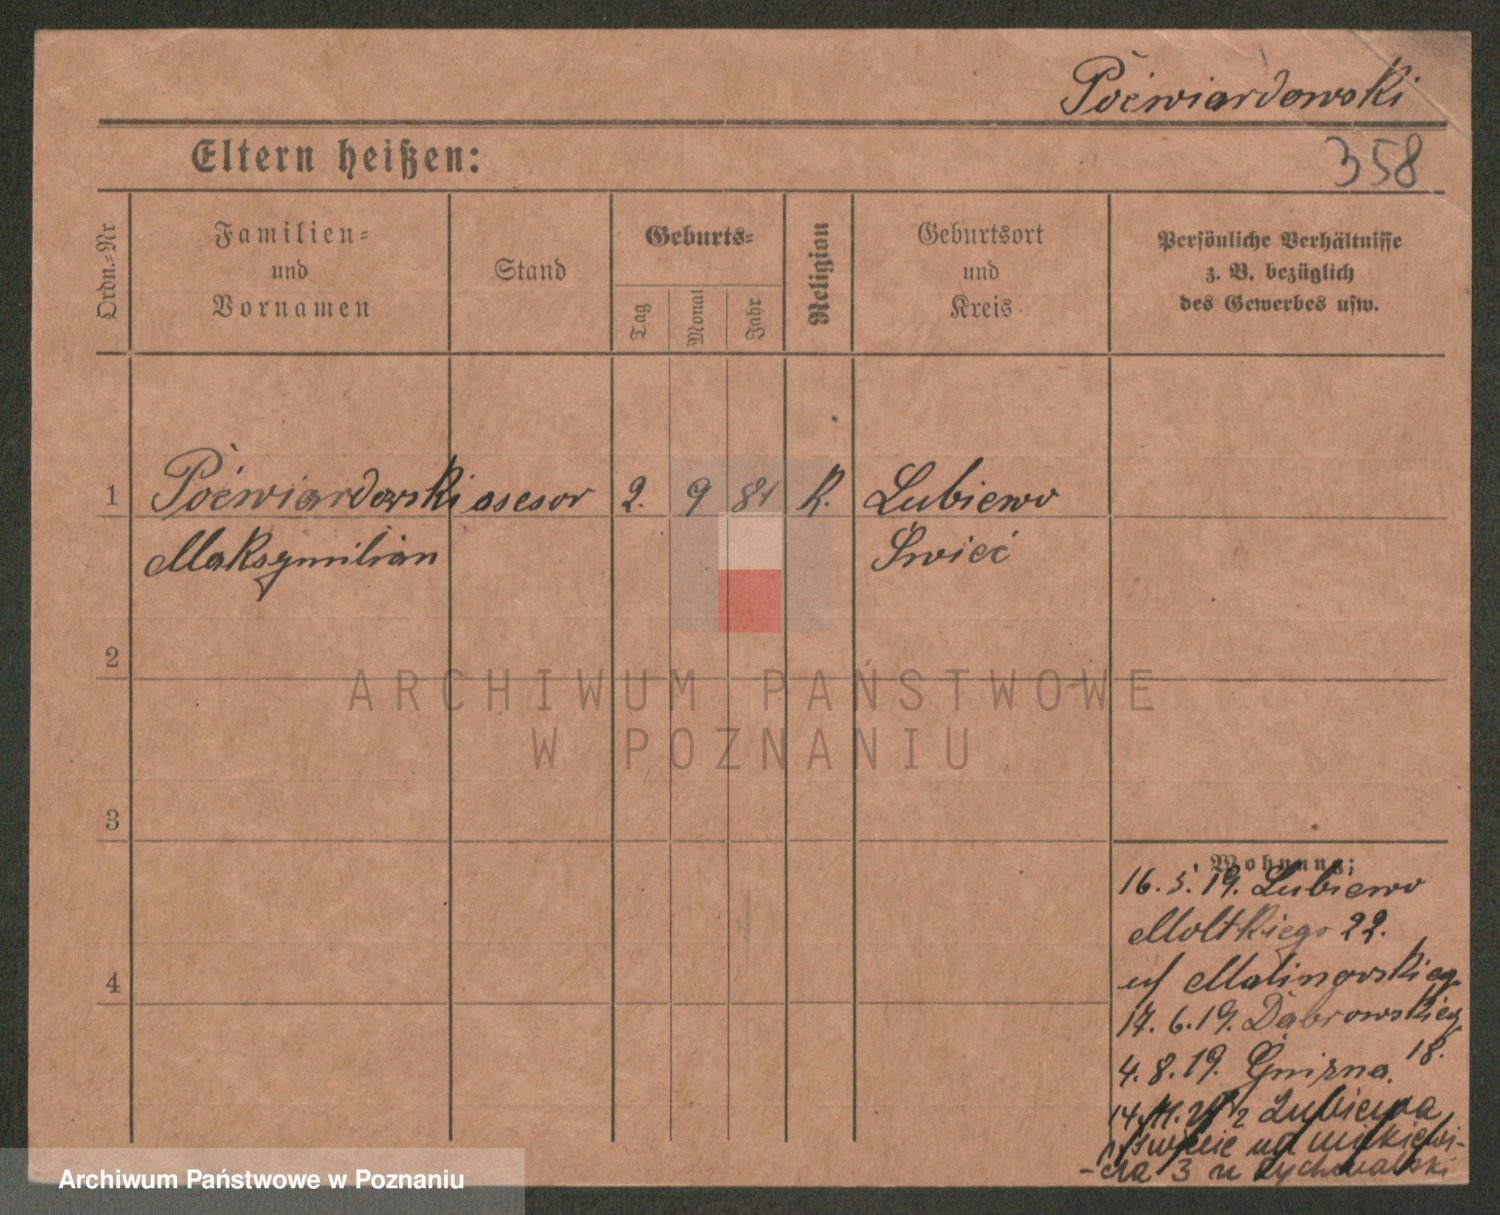 Poćwiardowski
Eltern heißen:
358
Ordn.=Nr
Familien=
und
Vornamen
Stand
Geburts=
Tag
Monat
Jahr
Religion
Geburtsort
und
Kreis
Persönliche Verhältnisse
z. B. bezüglich
des Gewerbes usw.
1 Poćwiardowski asesor 2. 9 81 K. Lubiewo
Maksymilian Świeć
2
3
4
Wohnung:
16. 5. 19. Lubiewo
Moltkiego 22.
Malinowskieg.
17. 6. 19. Dąbrowskieg
18.
4. 8. 19. Gnizna.
14. 11. Lubiewa
3 u
ARCHIWUM PAŃSTWOWE
W POZNANIU
Archiwum Państwowe w Poznaniu